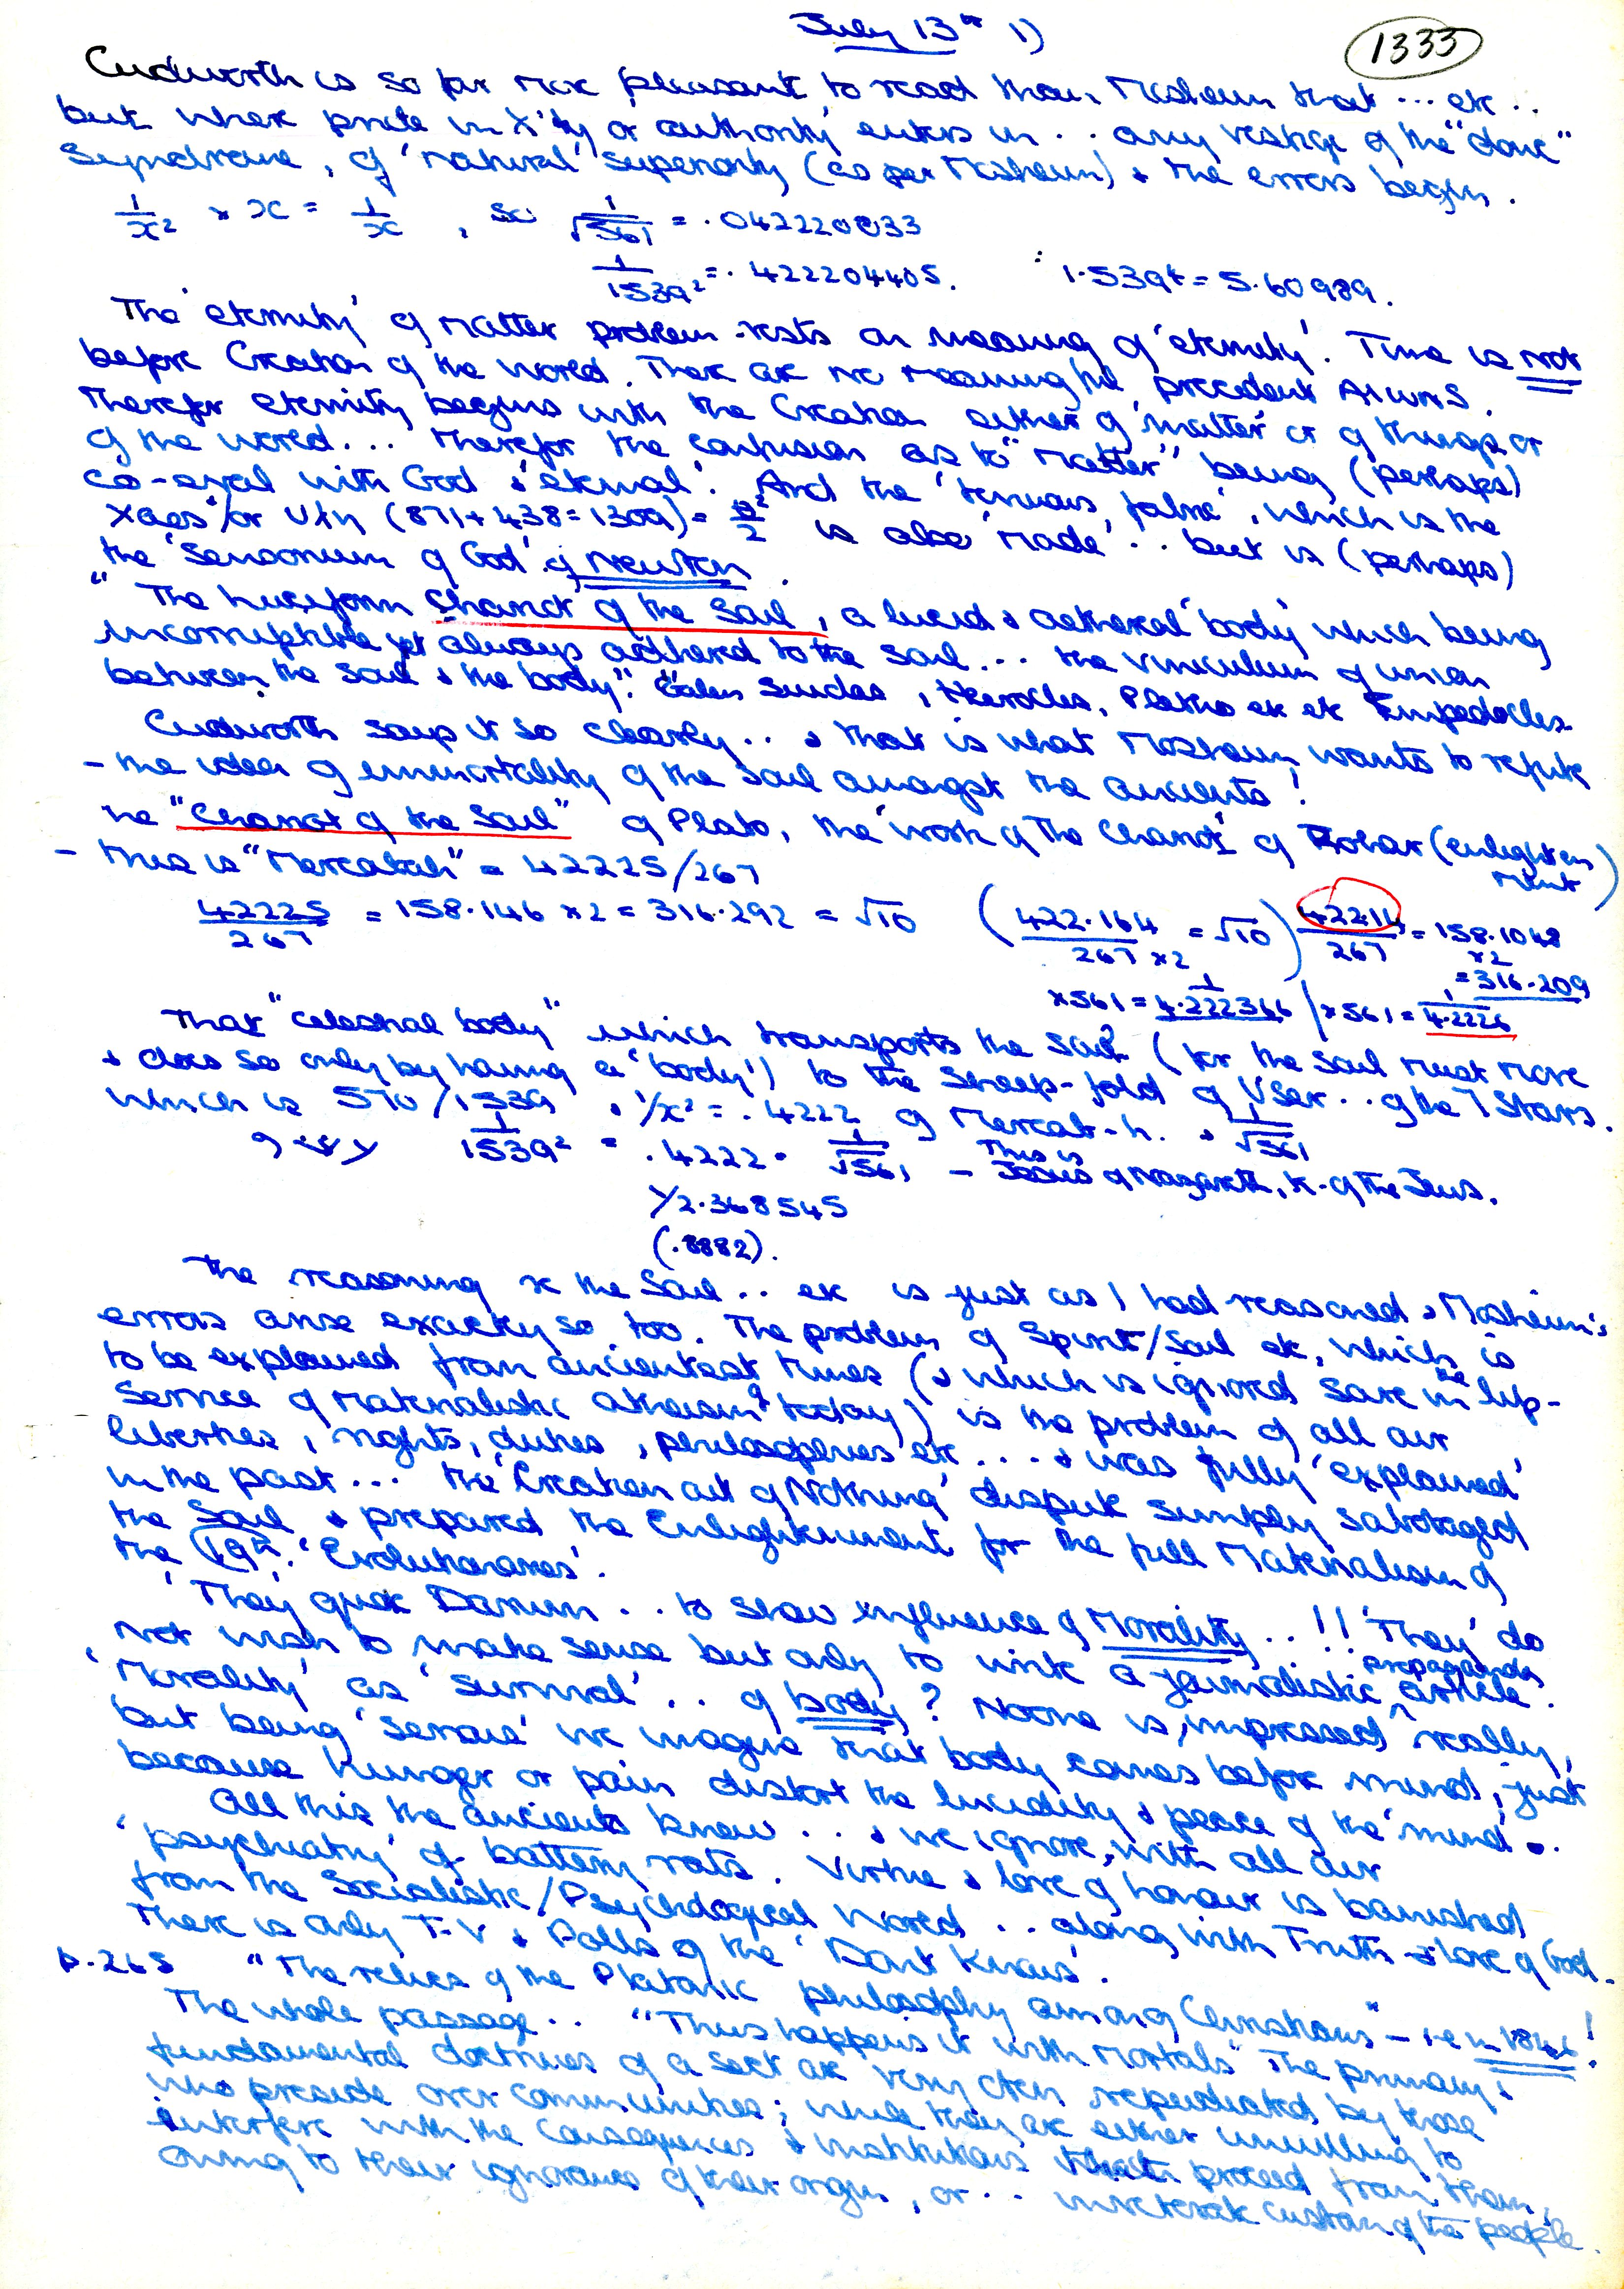 July 13th 1)
1333
Cudworth is so far more pleasant to read than Mosheim that ... etc ..
but where pride in X'ty or authority enters in .. any vestige of the "done"
Syndrome, of 'natural' superiority (as per Mosheim) & the errors begin.
1/x² × x = 1/x , so 1/√561 = .042220033
1/1539² = .422204405. : 1.539⁴ = 5.60989.
The 'eternity' of matter problem rests on meaning of 'eternity'. Time is not
before Creation of the World. There are no meaningful precedent Aiwns.
Therefor eternity begins with the Creation either of 'matter' or of things or
of the world... Therefor the confusion as to "matter" being (perhaps)
co-eval with God & 'eternal'. And the 'tenuous fabric', which is the
(871+438=1309) = is also 'made' .. but is (perhaps)
the 'Sensorium of God' of Newton.
" The luciform Chariot of the Soul, a lucid & aethereal 'body' which being
incorruptible yet always adhered to the soul... the vinculum of union
between the soul & the body". Galen Suidas, Hierocles, Pletho etc etc Empedocles
Cudworth says it so clearly .. & that is what Mosheim wants to refute
- the idea of immortality of the soul amongst the ancients!
The "Chariot of the Soul" of Plato, the 'Work of the Chariot' of Zohar (enlighten
ment)
- this is "Mercabah" = 42225/267
42225/267 = 158.146 ×2 = 316.292 = √10 (422.164/267 ×2 = √10) 422.14/267 = 158.1048
×2
= 316.209
×561 = 1/4.222366 | ×561 = 1/4.2226
That "celestial body" which transports the soul (for the soul must move
& does so only by having a 'body') to the Sheep-fold of .. of the 7 Stars.
which is 570/1539, 1/x² = .4222 of Mercab-h. & 1/√561
1/1539² = .4222. 1/√561 - This is Jesus of Nazareth, K. of the Jews.
1/2.368545
(.8882).
The reasoning re the Soul .. etc is just as I had reasoned & Mosheim's
errors arise exactly so too. The problem of Spirit/Soul etc, which is
to be explained from ancientest times (& which is ignored save in the lip-
service of materialistic atheism of today) is the problem of all our
liberties, rights, duties, philosophies etc ... & was fully 'explained'
in the past ... the 'Creation out of Nothing' dispute simply sabotaged
the Soul & prepared the Enlightenment for the full Materialism of
the 19th. 'Evolutionaries'.
'They' quote Darwin .. to show influence of Morality ..!! 'They' do
not wish to make sense but only to write a journalistic propaganda article.
'Morality' as 'survival' .. of body? Noone is impressed really,
but being 'serious' we imagine that body comes before mind, just
because hunger or pain distort the lucidity & peace of the 'mind'.
All this the ancients knew ... & we ignore, with all our
'psychiatry' of battery rats. Virtue & love of honour is banished
from the Socialistic/Psychological World .. along with Truth & love of God.
There is only T.V & Polls of the 'Dont Knows'.
p.265 "The relics of the Platonic philosophy among Christians" - i.e in 1846!
The whole passage .. "Thus happens it with mortals" The primary &
fundamental doctrines of a sect are very often repudiated by those
who preside over communities; while they are either unwilling to
interfere with the consequences & institutions that proceed from them,
owing to their ignorance of their origin, or .. inveterate custom of the people.